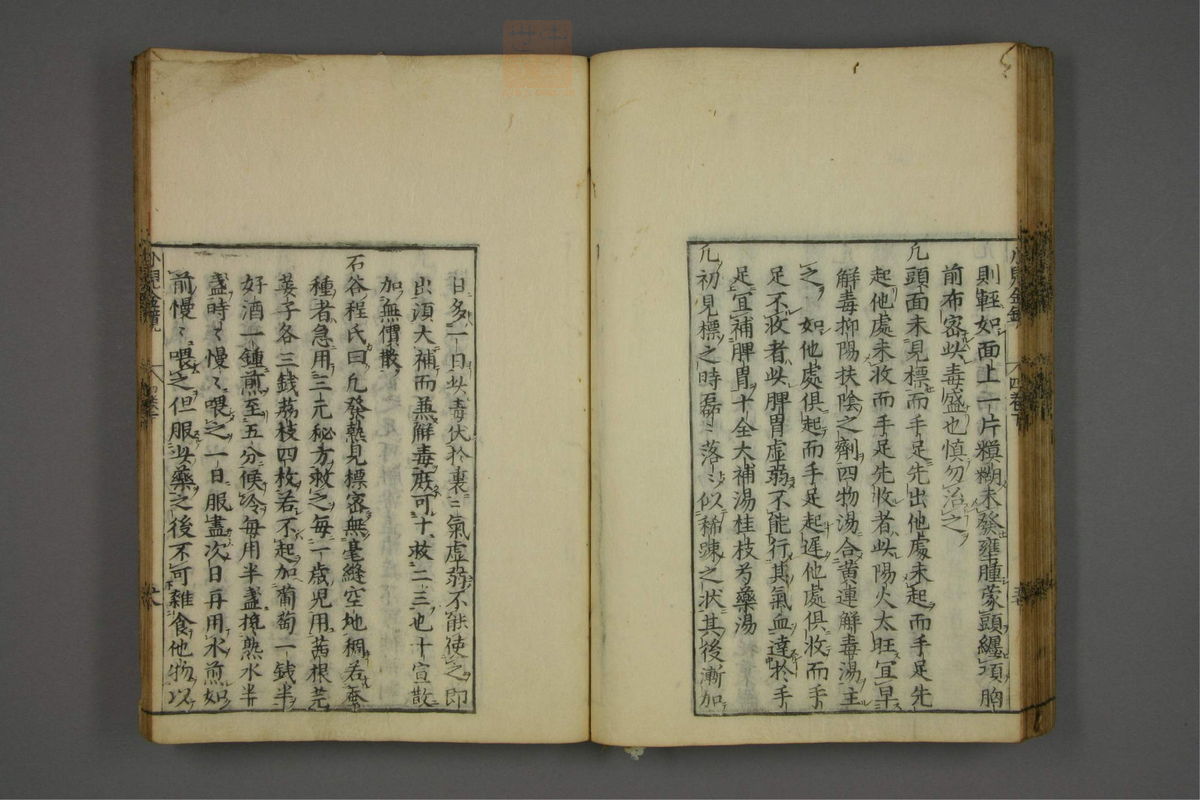 則輕如面上一片糢糊未發壅腫蒙頭纏項胸
前布密此毒盛也慎勿治之
凢頭面未見標而手足先出他處未起而手足先
起他處未收而手足先收者此陽火太旺宜早
解毒抑陽扶陰之劑四物湯合黄連解毒湯主
之如他處俱起而手足起遲他處俱收而手
足不收者此脾胃虛弱不能行其氣血達於手
足宜補脾胃十全大補湯桂枝芍藥湯
凢初見標之時磊〻落〻似稀踈之狀其後漸加
日多一日此毒伏於裏〻氣虛弱不能使之即
出須大補而兼解毒庶可十救二三也十宣散
加無價散
石谷程氏曰凢發熱見標密無毫縫空地稠若蚕
種者急用三元秘方救之每一歳児用茜根芫
荽子各三錢荔枝四枚若不起加葡萄一錢半
好酒一鍾煎至五分候冷每用半盞攙熟水半
盞時〻慢〻喂之一日服盡次日再用水煎如
前慢〻喂之但服此藥之後不可雜食他物以